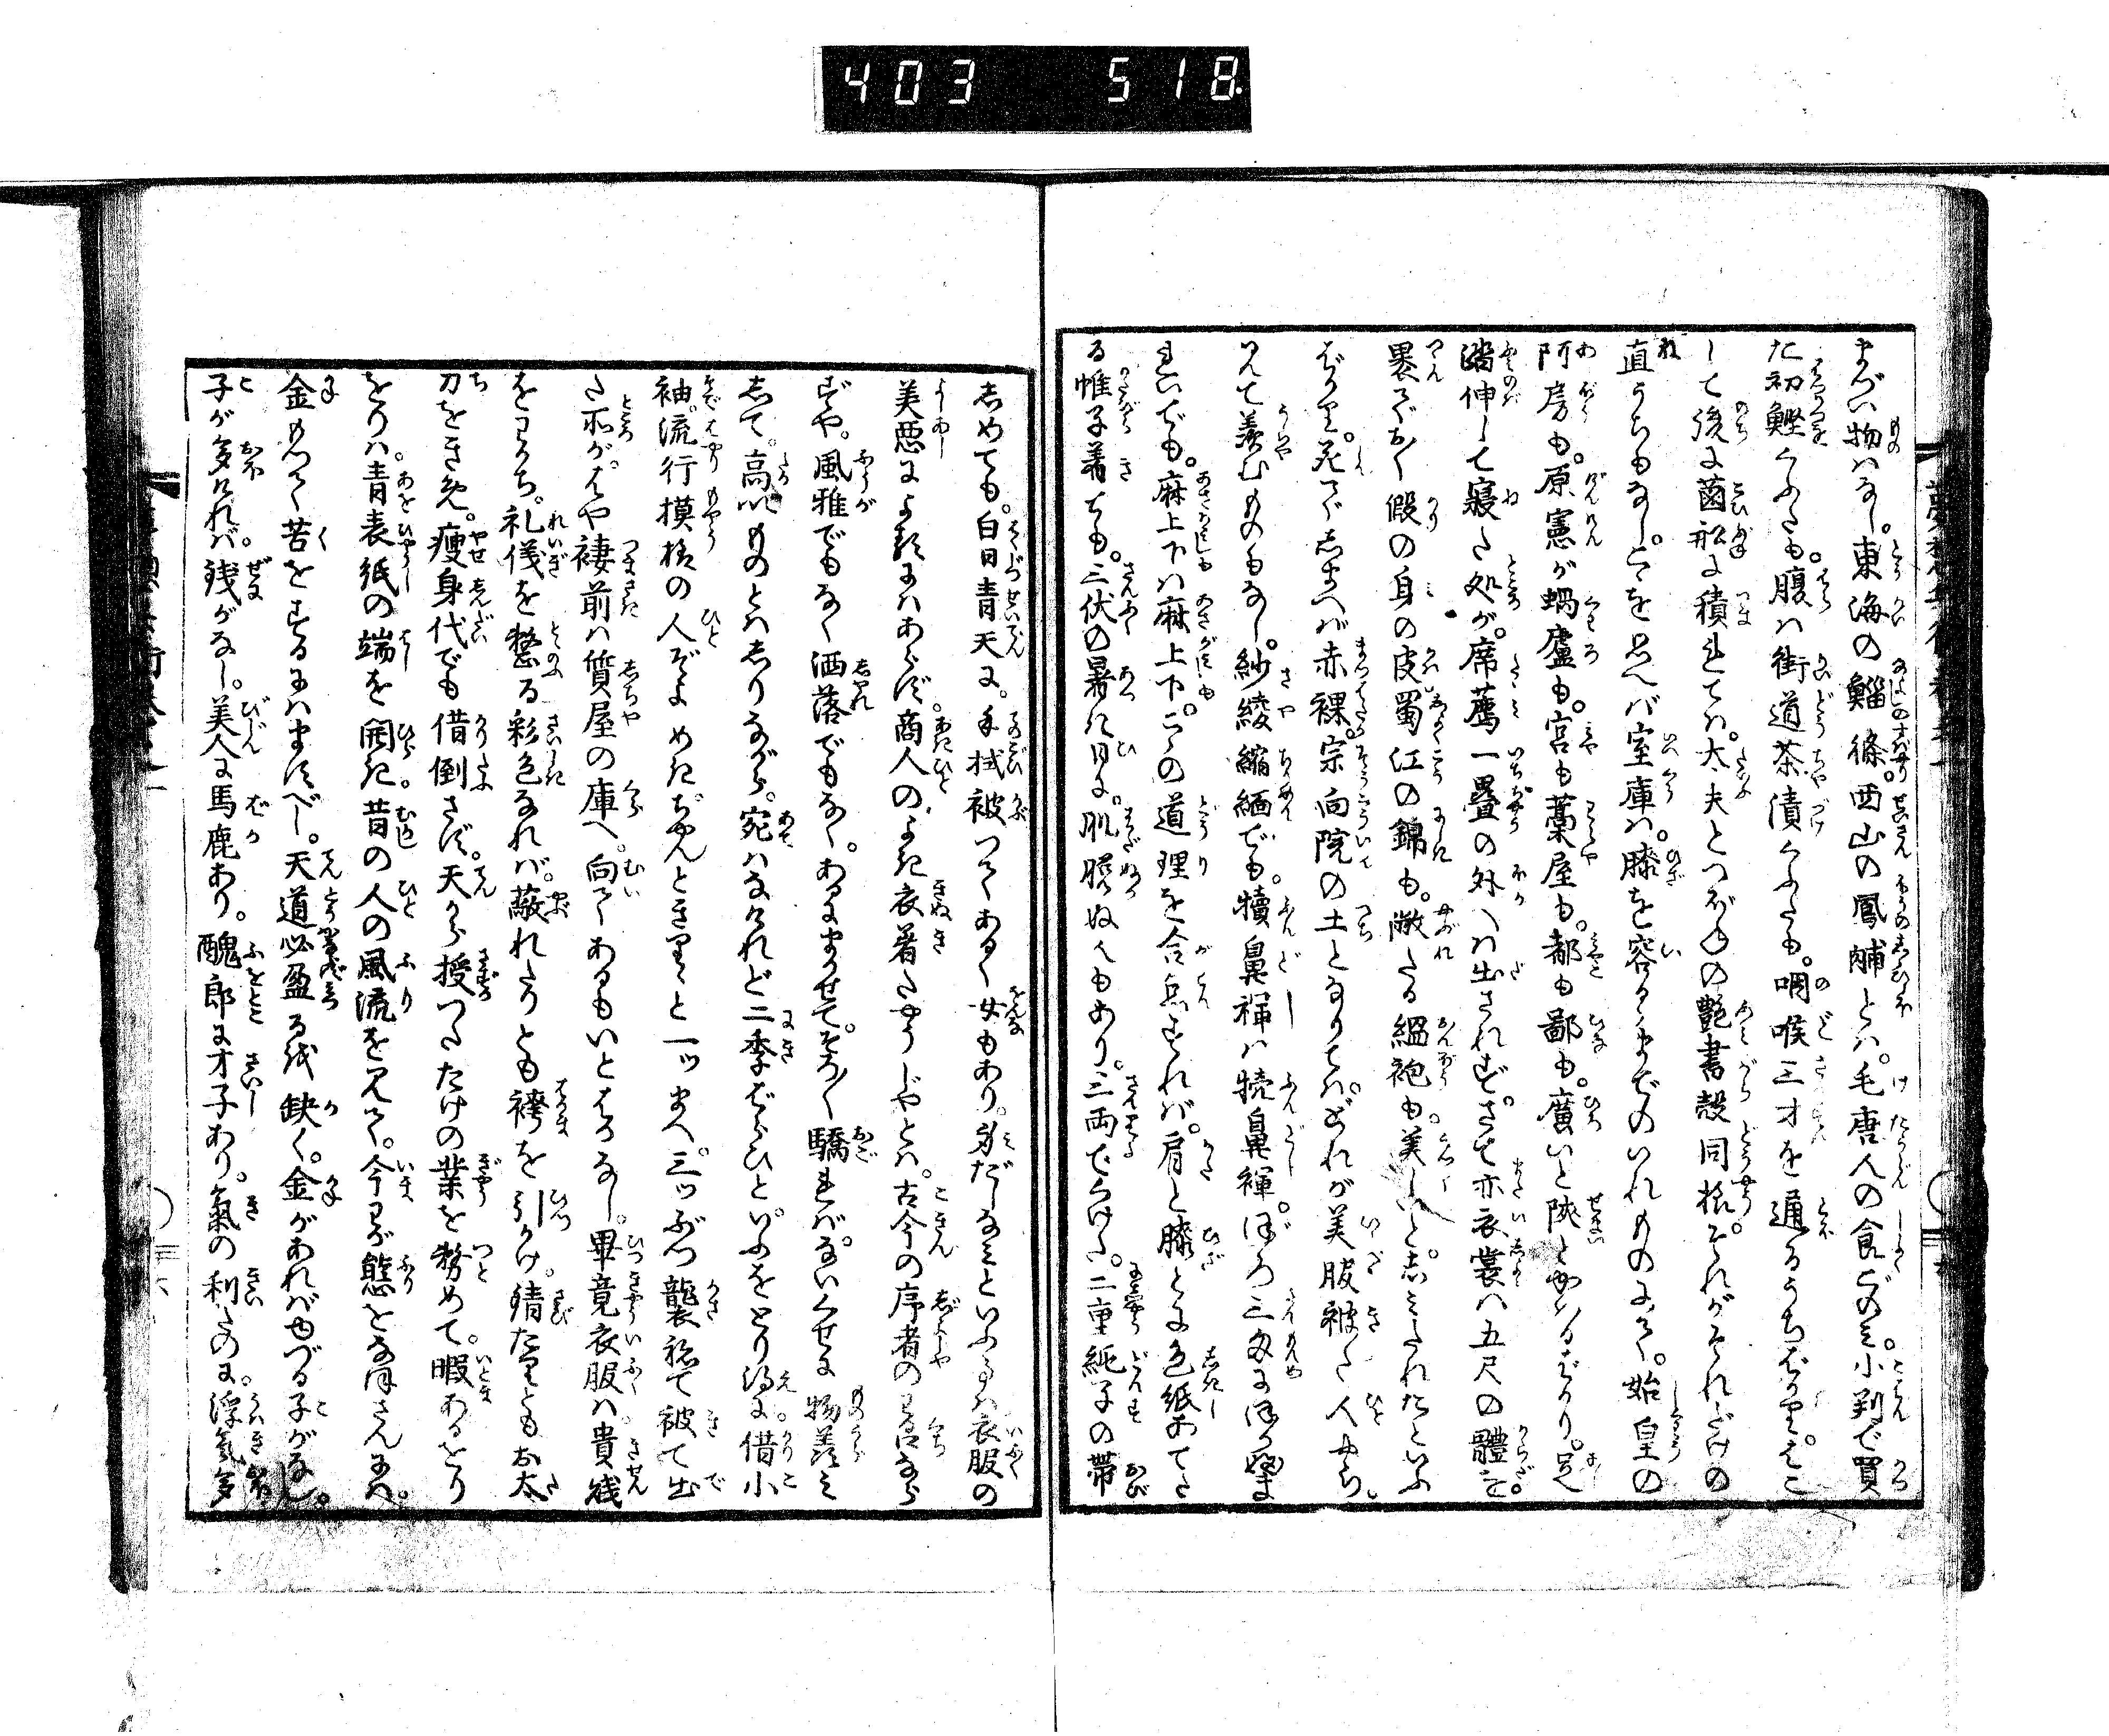 403 518
まづい物はなし。東海の鯔條。西山の鳳脯とは。毛唐人の食ごのミ。小判で買
た初鰹くふたも。腹は街道茶漬くふたも。咽喉三寸を通るうちばかり。そこ
して後は菌船に積れては。太夫とつぼねの艶書殻同様。それがそれだけの
直うちもなし。こゝを思へバ室庫は。膝を容るゝまでのいれものにて。始皇の
阿房も。原憲が蝸廬も。宮も藁屋も。都も鄙も。廣いと陜とかはるばかり。足
踏伸して寢た処が。席薦一疊の外へは出されず。さて亦衣裳は五尺の體を。
裹でおく假の身の皮蜀江の錦も。敝たる緼袍も。美しいと。しミたれたといふ
ばかり。死でしまへば赤裸。宗向院の土となりては。どれが美服被た人やら。
見て羨むものもなし。紗綾縮緬でも。犢鼻褌は犢鼻褌。ぼろ三
れいでも。麻上下は麻上下。こゝの道理を合点すれバ。肩と膝とに色紙あてた
る帷子着ても。三伏の暑き日に。肌膚ぬぐもあり。三両でくけた。二重純子の帶
しめても。白日青天に。手拭被つてあるく女もあり。身だしなミといふ事は衣服の
美悪によるにはあらず。商人のよき衣着たやうじやとは。古今の序者の
ずや。風雅でもなく洒落でもなく。あるにまかせて。そろ〳〵驕れバ。ないくせに物羨ミ
して。高いものとハしりながら。宛はなけれど二季ばらひといふをとり得に借小
袖。流行模様の人ぞよめきぢやんときりゝと一ッまへ。三ッぶつ襲ねて被て出
た所が。はや褄前は質屋の庫へ。向てあるもいとはるなし。畢竟衣服は貴賎
をわかち。礼儀を整る彩色なれバ。敝れたりとも袴を引かけ。錆たりともお太
刀をきめ。痩身代でも借倒さず。天から授つたたけの業を務めて。暇あるをり
をりハ。青表紙の端を開き。昔の人の風流を見て。今わが態をなほさんには。
金もつて苦をするにはますべし。天道必盈るを缺く。金があればゆづる子がなし。
子が多けれバ。銭がなし。美人に馬鹿あり。醜郎に才子あり。氣の利たのは。浮氣多